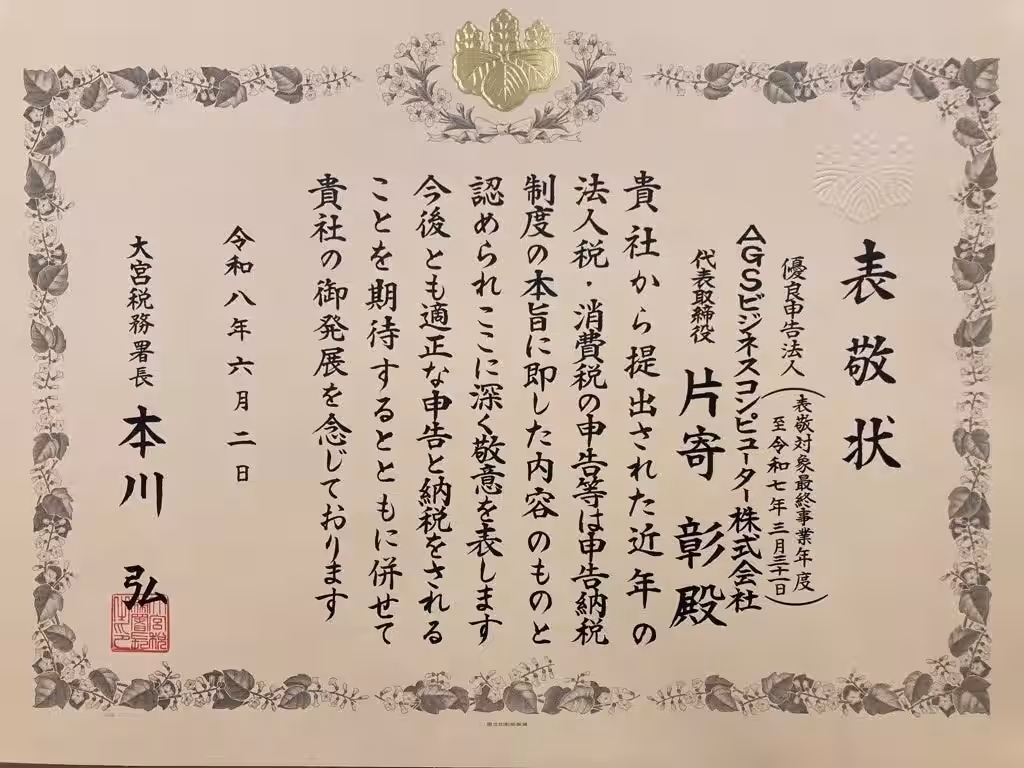 表敬状
優良申告法人(表敬対象最終事業年度 至令和七年三月三十一日)
AGSビジネスコンピューター株式会社
代表取締役 片寄 彰殿
貴社から提出された近年の
法人税・消費税の申告等は申告納税
制度の本旨に即した内容のものと
認められここに深く敬意を表します
今後とも適正な申告と納税をされる
ことを期待するとともに併せて
貴社の御発展を念じております
令和八年六月二日
大宮税務署長 本川 弘